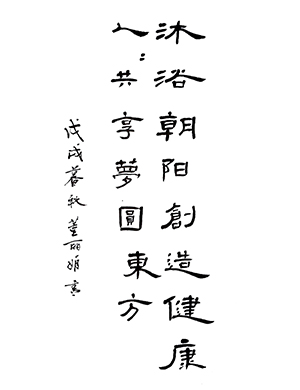 沐浴朝阳創造健康
人:共享夢圓東方
戊戌暮秋董丽娟書